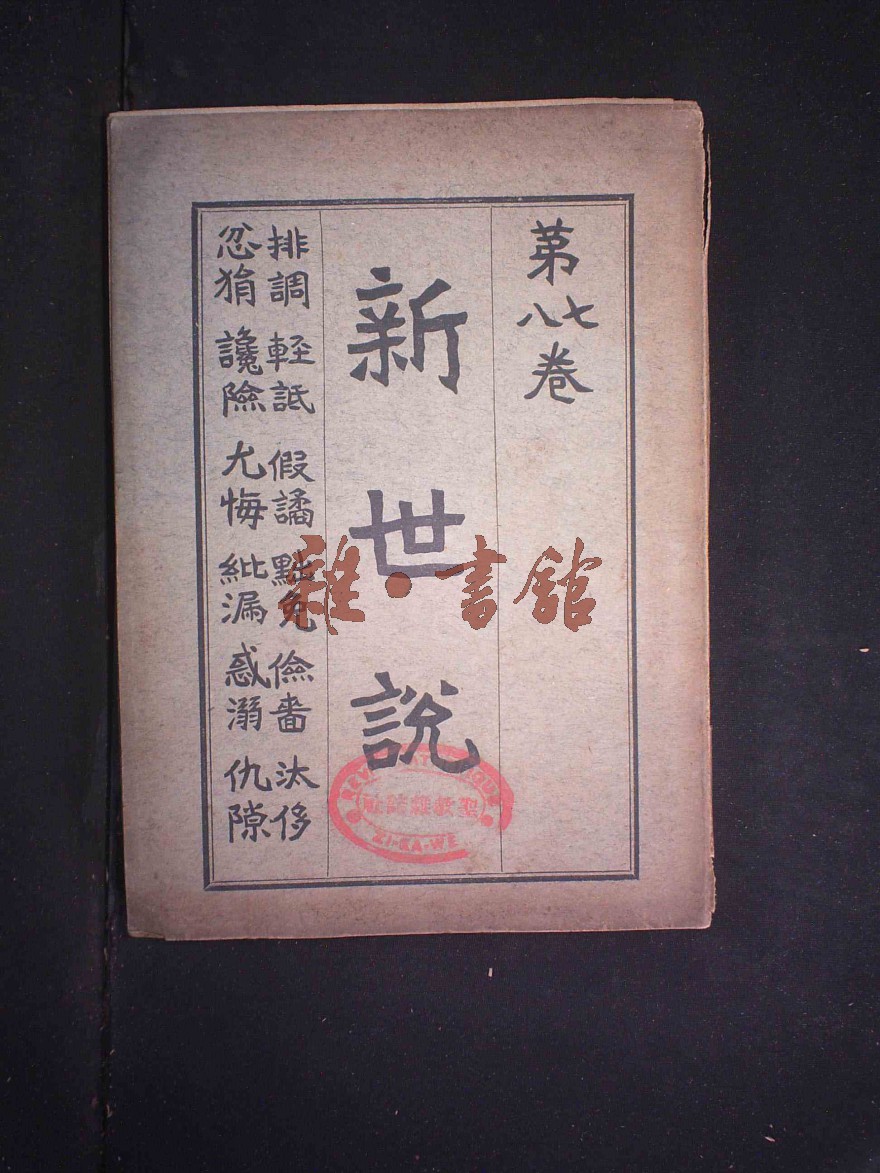 第七八卷
新世說
排調 輕詆 假譎 黜免 儉嗇 汰侈
忿狷 讒險 尤悔 紕漏 惑溺 仇隙
雜·書館
聖教雜誌社
ZI-KA-WE